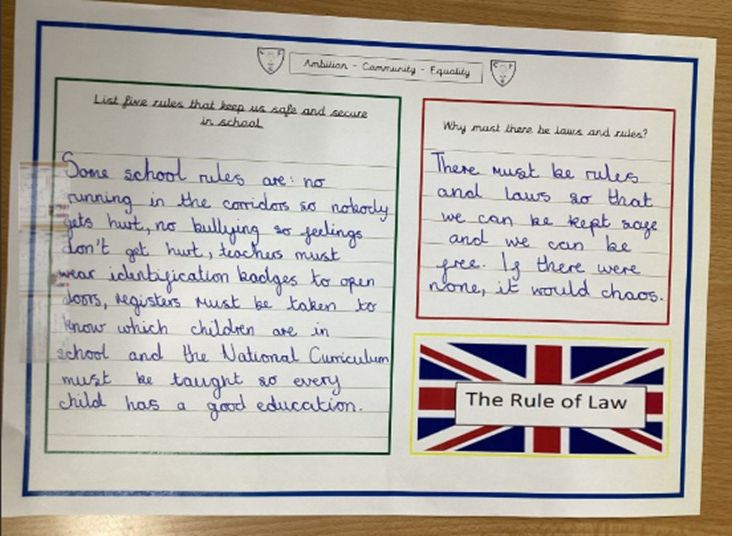 Ambition - Community - Equality
List five rules that keep us safe and secure
in school
Some school rules are: no
running in the corridors so nobody
gets hurt, no bullying so feelings
don't get hurt, teachers must
wear identification badges to open
doors, registers must be taken to
know which children are in
school and the National Curriculum
must be taught so every
child has a good education.
Why must there be laws and rules?
There must be rules
and laws so that
we can be kept safe
and we can be
free. If there were
none, it would chaos.
The Rule of Law